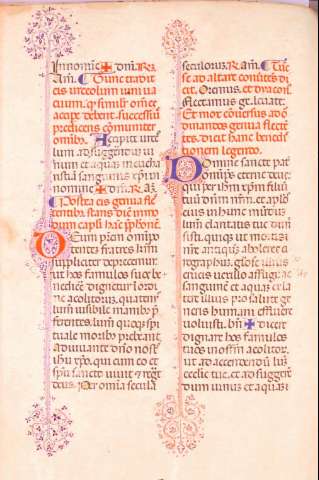 In nomine ✠ dm̄. Rx.
Am̄. ¶ Tunc tradit
eis urceolum uini va
cuum, quod simil'r om̄es
accipe debent successiue
pontifice dicens communiter
omnib;. Accipite urceo
lum ad suggerendū ui
num et aquam in eucha
ristia sanguinis xp̄i in
nomine ✠ dm̄. R. am̄.
¶ Postea eis genua fle
ctentib;, stans dicit in mo
dum capl'i hanc
Deum patrem omnipo
tentem fratres kmi
suppliciter deprecemur
ut hos famulos suos be
nedicere dignetur in ordi
ne acolitorum, quatenus
lumen uisibile manibus p
ferentes, lumen quoque spi
rituale moribus prebeant
adiuuante dn̄o nostro
ihu xp̄o, qui cum eo et
spū sancto uiuit et regnat
deus. Per omnia secula
seculorum. R. Am̄. ¶ Tunc
se ad altare conuertēs di
cit. Oremus. et diaconꝰ
flectamus ge. leuate.
Et mox conuersus ad or
dinantes genua flecten
tes, dicit hanc benedicti
onem legendo.
Domine sancte pater
omnipotens eterne deus,
qui per ihm xp̄m filiū
tuū dn̄m nr̄m, et aplos
eius in hunc mundum
lumen claritatis tue di
sisti, quique ut mortis
nr̄e antiquū aboleres ci
rographum, gloriosissime illum
crucis uexillo affigi, ac
sanguinem et aquam ex la
tere illius pro salute ge
neris humani effluere
uoluisti. bn̄ ✠ dicere
dignare hos famulos
tuos in offm̄ acolitorum,
ut ad accendendū lumen
ecclesie tue, et ad suggeren
dum uinum et aquam